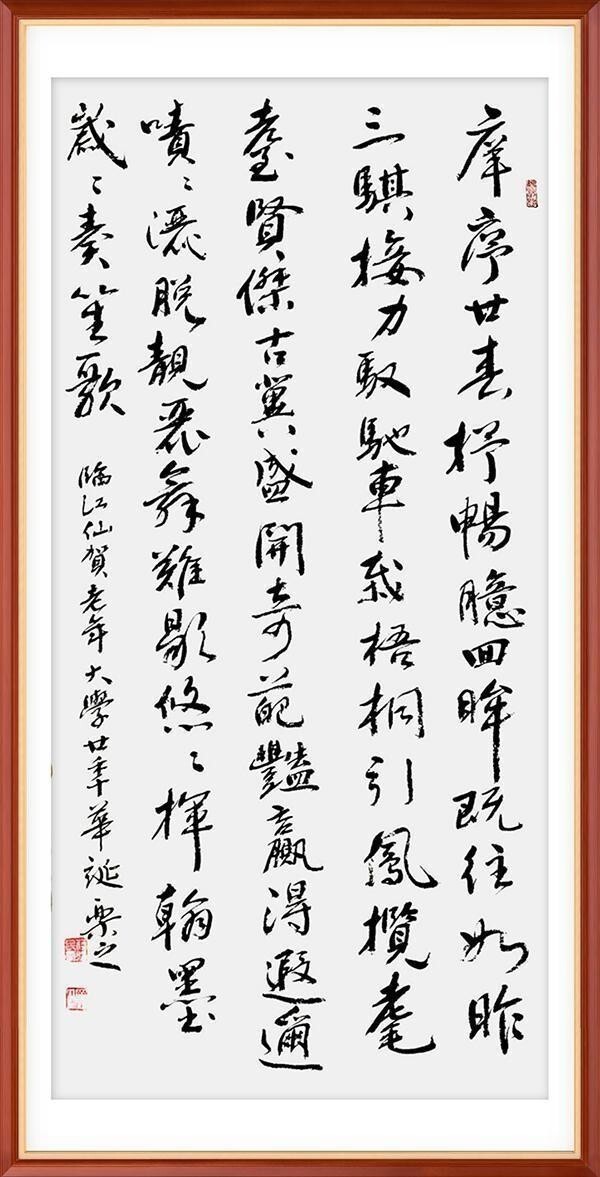 庠序廿春抒暢臆回眸既往如昨
三騏接力馭馳車栽梧桐引鳳攬耄
耋賢傑古冀盛開奇葩豔贏得遐邇
嘖〻灑脫靚麗舞難歇悠〻揮翰墨
歲〻奏笙歌
臨江仙賀老年大學廿秊華誕樂之